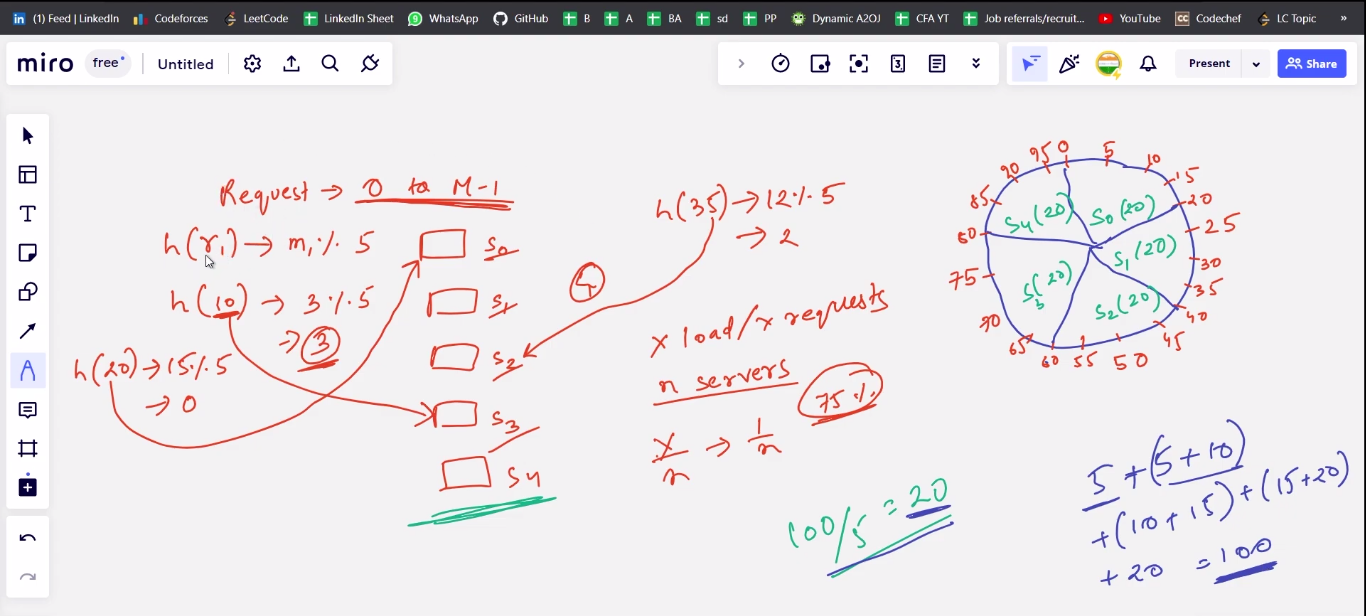 (1) Feed | LinkedIn Codeforces LeetCode LinkedIn Sheet WhatsApp GitHub B A BA sd PP Dynamic A2OJ CFA YT Job referrals/recruit... YouTube Codechef LC Topic »
miro free Untitled Present Share
Request → 0 to M-1
h(r₁) → m₁ % 5
h(10) → 3 % 5
→ 3
h(20) → 15 % 5
→ 0
S0
S1
S2
S3
S4
h(35) → 12 % 5
→ 2
4
x load/x requests
n servers
75 %
x/n → 1/n
100/5 = 20
0
5
10
15
20
25
30
35
40
45
50
55
60
65
70
75
80
85
90
95
S0 (20)
S1 (20)
S2 (20)
S3 (20)
S4 (20)
5 + (5 + 10)
+ (10 + 15) + (15+20)
+ 20 = 100